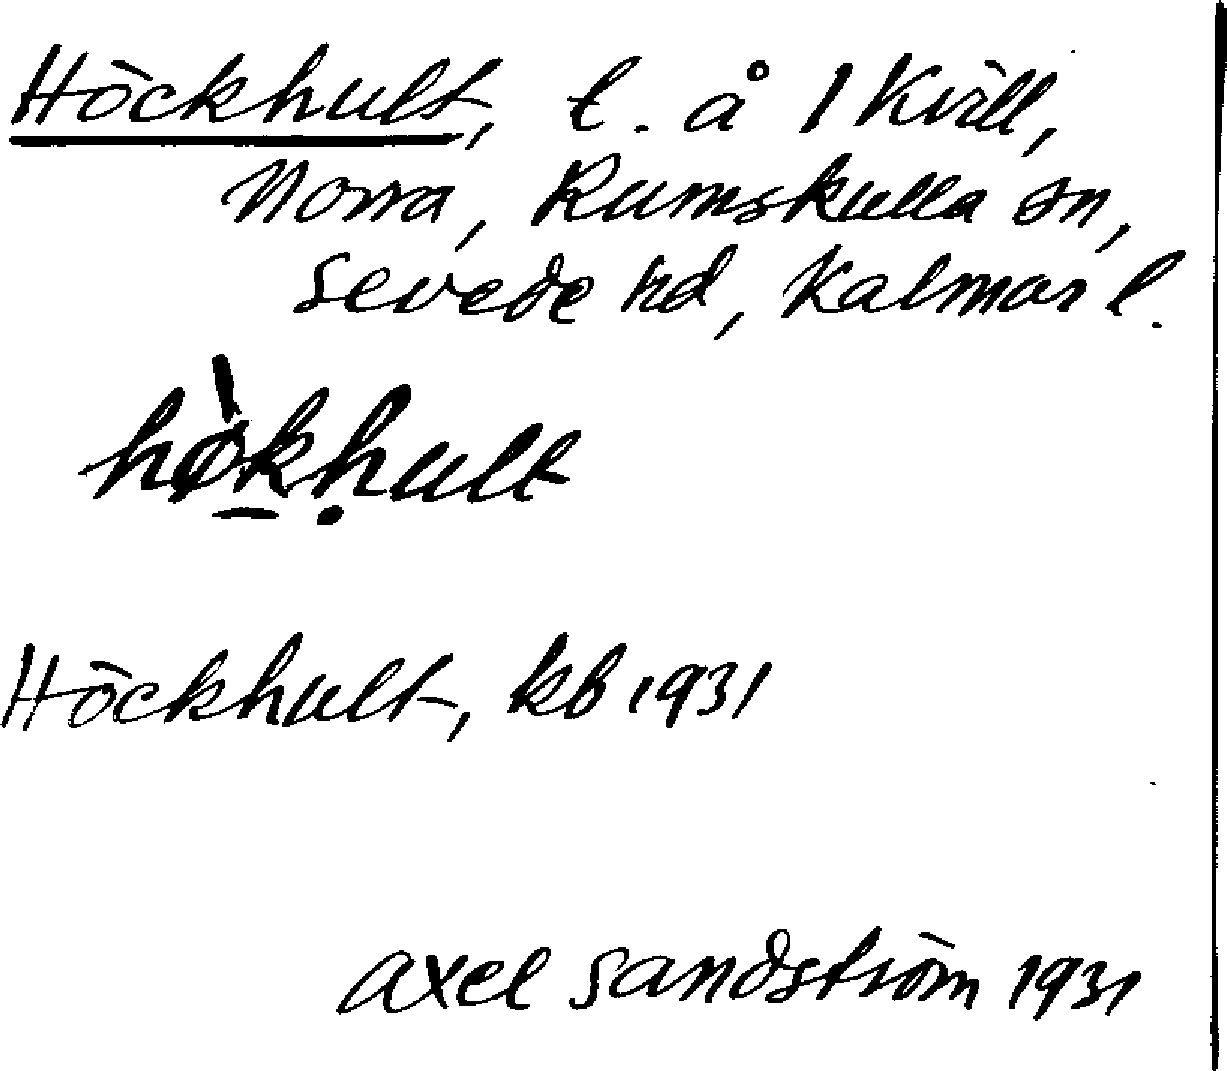 Höckhult, l. å 1 Kvill,
Norra, Rumskulla sn,
Sevede hd, Kalmar l.
hø̀kḥult
Höckhult, kb 1931
Axel Sandström 1931